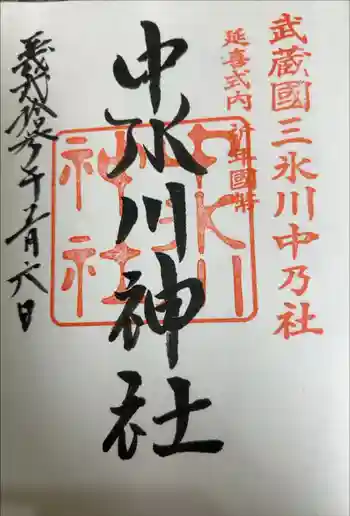 武蔵國三氷川中乃社
延喜式内 祈年國幣
中氷川神社
中氷川
神社
平成弐拾年月六日